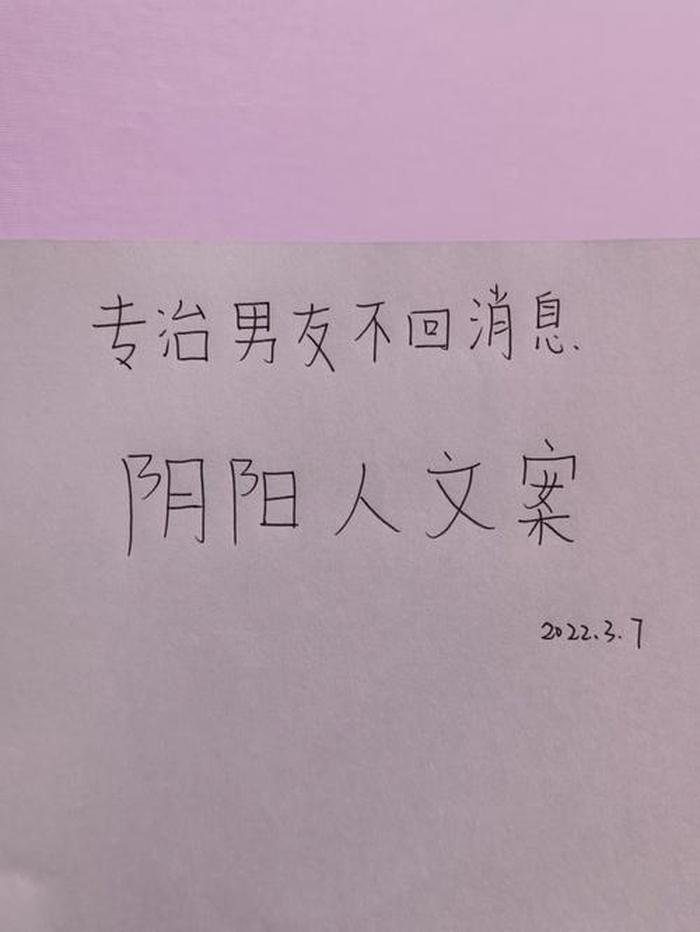 专治男友不回消息.
阴阳人文案
2022.3.7